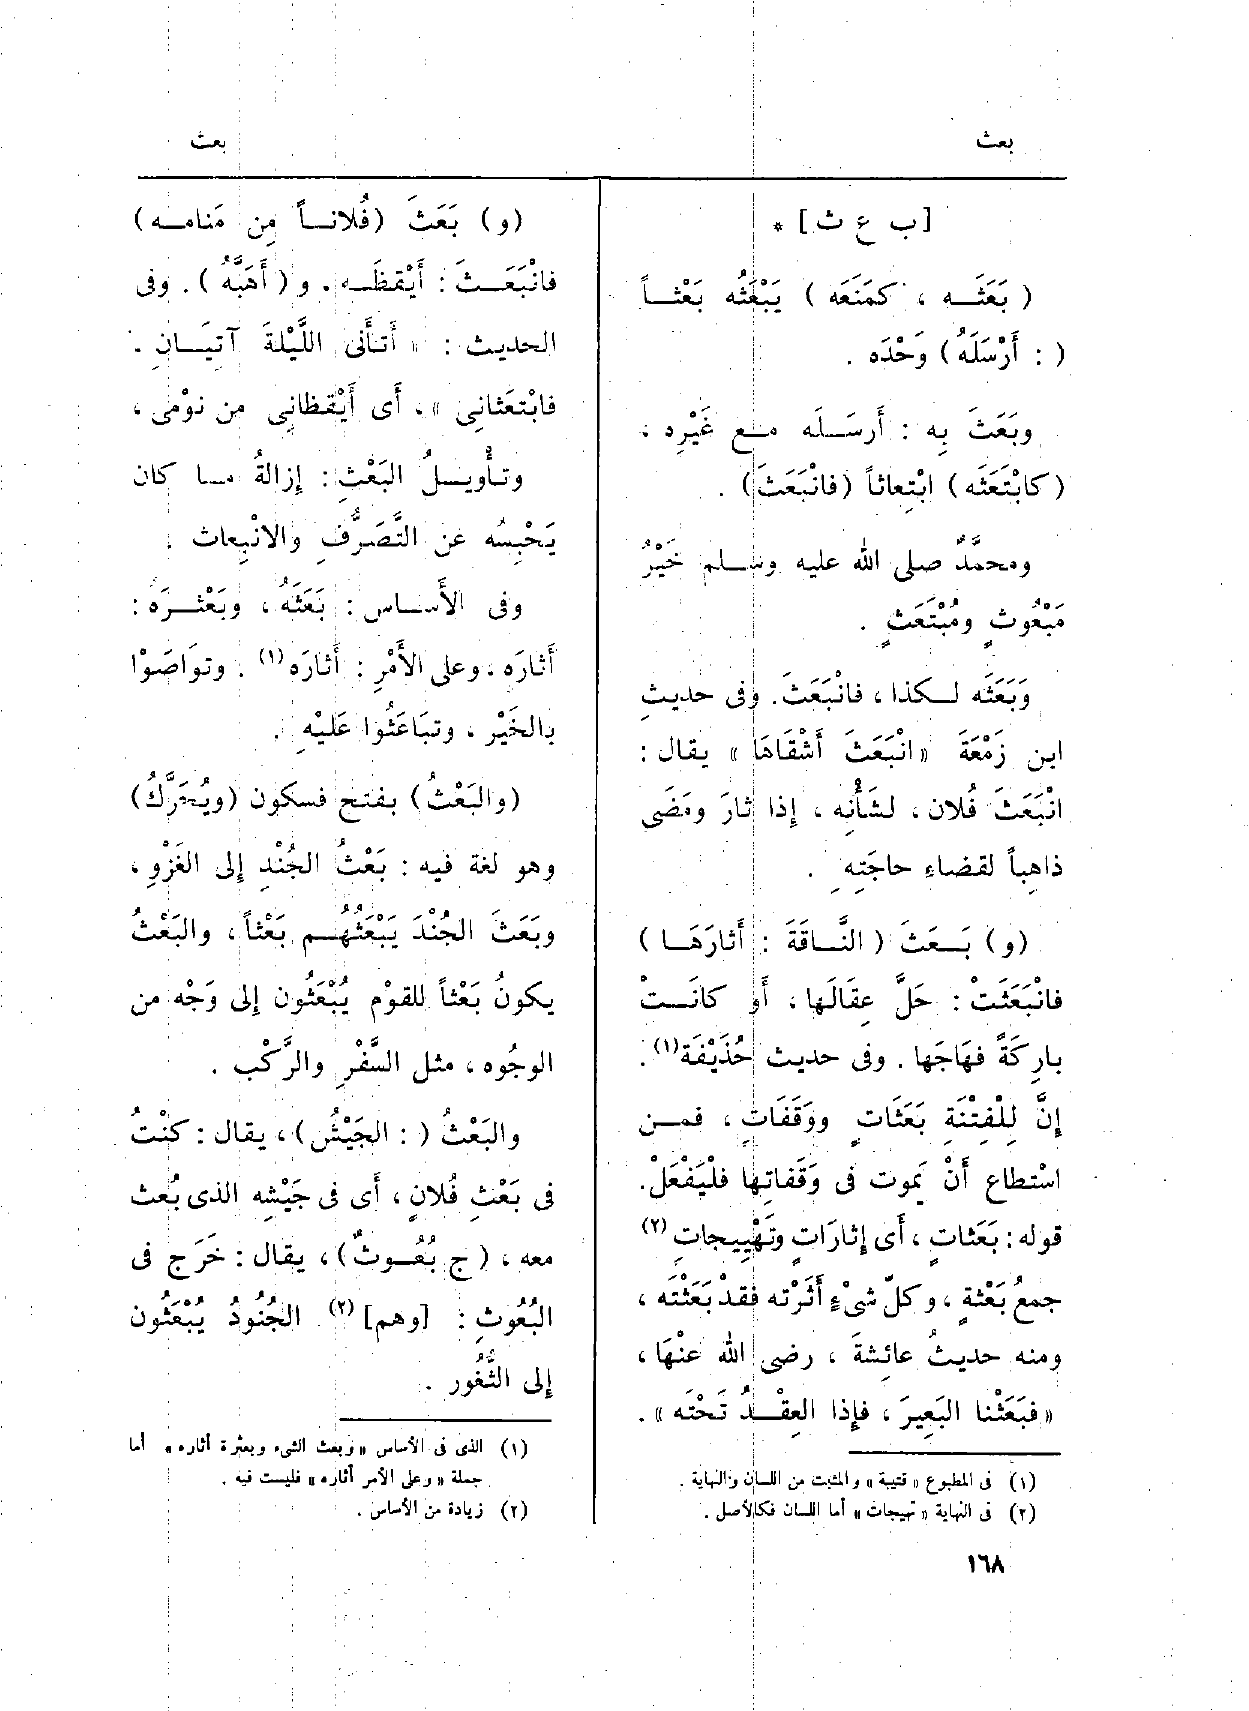 بعث
بعث
[ب ع ث] *
( بَعَثَـه ، كمَنَعَه ) يَبْعَثُه بَعْثـاً
( : أَرْسَلَهُ) وَحْدَه .
وبَعَثَ بِه : أَرسَـلَه مـع غَيْرِه ،
(كابْتَعَثَه) ابْتِعاثاً (فانْبَعَثَ) .
ومحمدٌّ صلى الله عليه وسـلم خَيْرُ
مَبْعُوثٍ ومُبْتَعَثٍ .
وَبَعَثَه لـكذا ، فانْبَعَثَ. وفى حديثِ
ابن زَمْعَةَ «انْبَعَثَ أَشْقَاهَا» يقال :
انْبَعَثَ فُلان ، لشَأْنِه ، إِذا ثارَ ومَضَى
ذاهِباً لقضاءِ حاجَتِهِ .
(و) بَـعَثَ (النَّـاقَةَ : أَثارَهَـا)
فانْبَعَثَتْ : حَلَّ عِقَالَها ، أَو كانَـتْ
بارِكَةً فهَاجَها . وفى حديث حُذَيْفَة(١).
إِنَّ لِلْفِتْنَةِ بَعَثَاتٍ ووَقَفَاتٍ ، فمـن
اسْتطاع أَنْ يَموت فى وَقَفاتِها فلْيَفْعَلْ.
قوله : بَعَثات ، أَى إِثارَات وتَهْيِيجاتٍ (٢)
جمعُ بَعْثةٍ ، وكلّ شىْءٍ أَثَرْته فقدْ بَعَثْتَه ،
ومنه حديثُ عائِشةَ ، رضى الله عنْهَا ،
«فبَعَثْنا البَعِيرَ ، فإِذا العِقْـدُ تَحْتَه» .
(١) فى المطبوع «قتيبة» والمثبت من اللسان والنهاية .
(٢) فى النهاية «تهيجات» أما اللسان فكالأصل .
(و) بَعَثَ (فُلانـاً مِن مَنامـه)
فانْبَعَـثَ : أَيْقظَـه . و (أَهَبَّهُ) . وفى
الحديث : «أَتـأَنى اللَّيْلةَ آتيَـان .
فابْتعَثانى» ، أَى أَيْقظانِى من نوْمى ،
وتـأْويـلُ البَعْثِ : إِزالةُ مـا كان
يَحْبِسُه عن التَّصَرُّفِ والانْبِعاث .
وفى الأَسـاس : بَعَثَهُ ، وبَعْثـرَه :
أَثارَه . وعلى الأَمْرِ : أَثارَه (١) . وتوَاصَوْا
بالخَيْر ، وتبَاعَثُوا عَليْهِ .
(والبَعْثُ) بفتح فسكون (ويُحَرَّكُ)
وهو لغة فيه : بَعْثُ الجُنْدِ إِلى الغَزْوِ ،
وبَعَثَ الجُنْدَ يَبْعَثُهُـم بَعْثاً ، والبَعْثُ
يكونُ بَعْثاً للقوْم يُبْعَثُون إِلى وَجْه من
الوجُوه ، مثل السَّفْرِ والرَّكْب .
والبَعْثُ ( : الجَيْشُ) ، يقال : كنْتُ
فى بَعْثِ فُلانٍ ، أَى فى جَيْشِه الذى بُعث
معه ، (ج بُعُـوثٌ) ، يقال : خَرَج فى
البُعُوثِ : [وهم] (٢) الجُنُودُ يُبْعَثُون
إِلى الثُّغُور .
(١) الذى فى الأساس «وبعث الشىء وبعثرة أثاره» أما
جملة «وعلى الأمر أثاره» فليست فيه .
(٢) زيادة من الأساس .
١٦٨